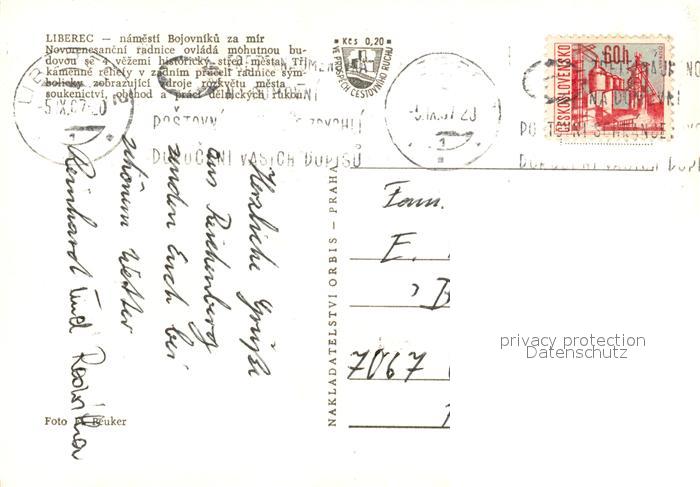 LIBEREC — náměstí Bojovníků za mír
Novorenesanční radnice ovládá mohutnou bu-
dovou se 4 věžemi historický střed města. Tři
kamenné reliefy v zadním průčelí radnice sym-
bolicky zobrazující zdroje rozkvětu města —
soukenictví, obchod a práci dělnických rukou.
Kčs 0,20
VE PROSPĚCH CESTOVNÍHO RUCHU
-5.IX.67-20
POŠTOVN
DORUČENÍ VAŠICH DOPISŮ
-5.IX.67-20
1
ČESKOSLOVENSKO
60h
DORUČENÍ VAŠICH DOPI
Herzliche Grüße
aus Reichenberg
senden Euch bei
schönem Wetter
Reinhard und
NAKLADATELSTVÍ ORBIS — PRAHA
Fam.
E.
7067
privacy protection
Datenschutz
Foto
Beuker